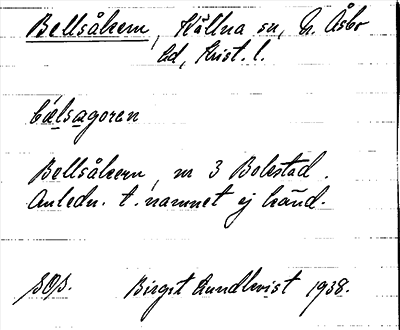 Bellsåkern, Källna sn, N. Åsbo
hd, Krist. l.
bælsagoren
Bellsåkern, nr 3 Bokstad.
Anledn. t. namnet ej känd.
Birgit Lundkvist 1938.